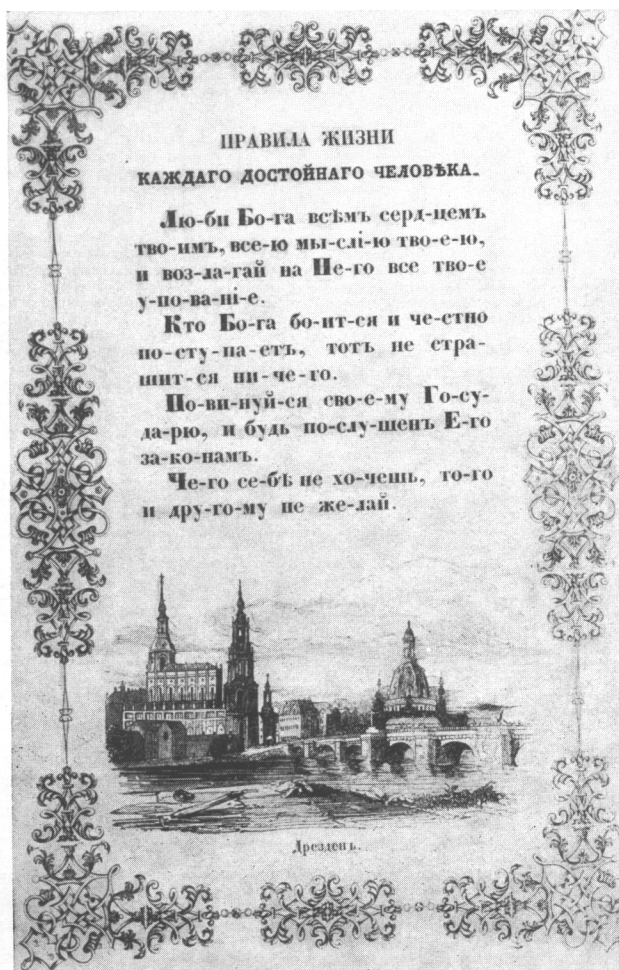 ПРАВИЛА ЖИЗНИ
КАЖДАГО ДОСТОЙНАГО ЧЕЛОВѢКА.
Лю-би Бо-га всѣмъ серд-цемъ
тво-имъ, все-ю мы-слі-ю тво-е-ю,
и воз-ла-гай на Не-го все тво-е
у-по-ва-ні-е.
Кто Бо-га бо-ит-ся и че-стно
по-сту-па-етъ, тотъ не стра-
шит-ся ни-че-го.
По-ви-нуй-ся сво-е-му Го-су-
да-рю, и будь по-слу-шенъ Е-го
за-ко-намъ.
Че-го се-бѣ не хо-чешь, то-го
и дру-го-му не же-лай.
Дрезденъ.